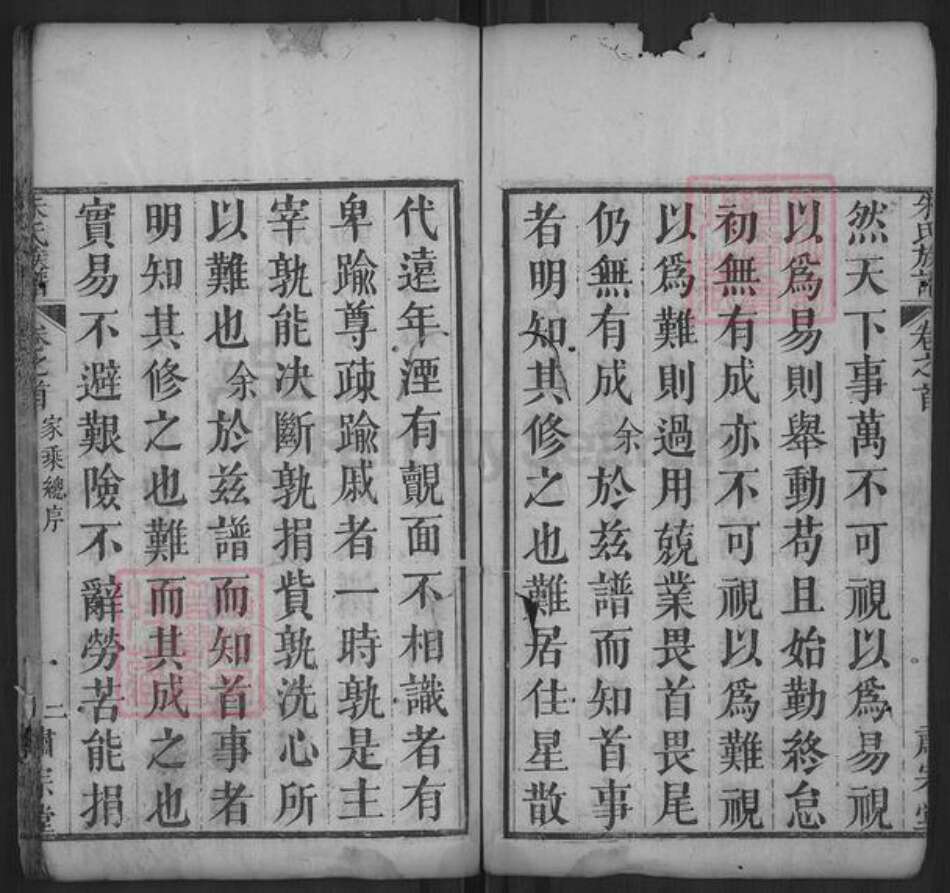 然天下事萬不可視以爲易視
以爲易則舉動苟且始勤終怠
初無有成亦不可視以爲難視
以爲難則過用兢業畏首畏尾
仍無有成余於兹譜而知首事
者明知其修之也難居住星散
代遠年湮有覿面不相識者有
卑踰尊疎踰戚者一時孰是主
宰孰能决斷孰捐貲孰洗心所
以難也余於兹譜而知首事者
明知其修之也難而其成之也
實易不避艱險不辭勞苦能捐
卷之首
家乘總序
二